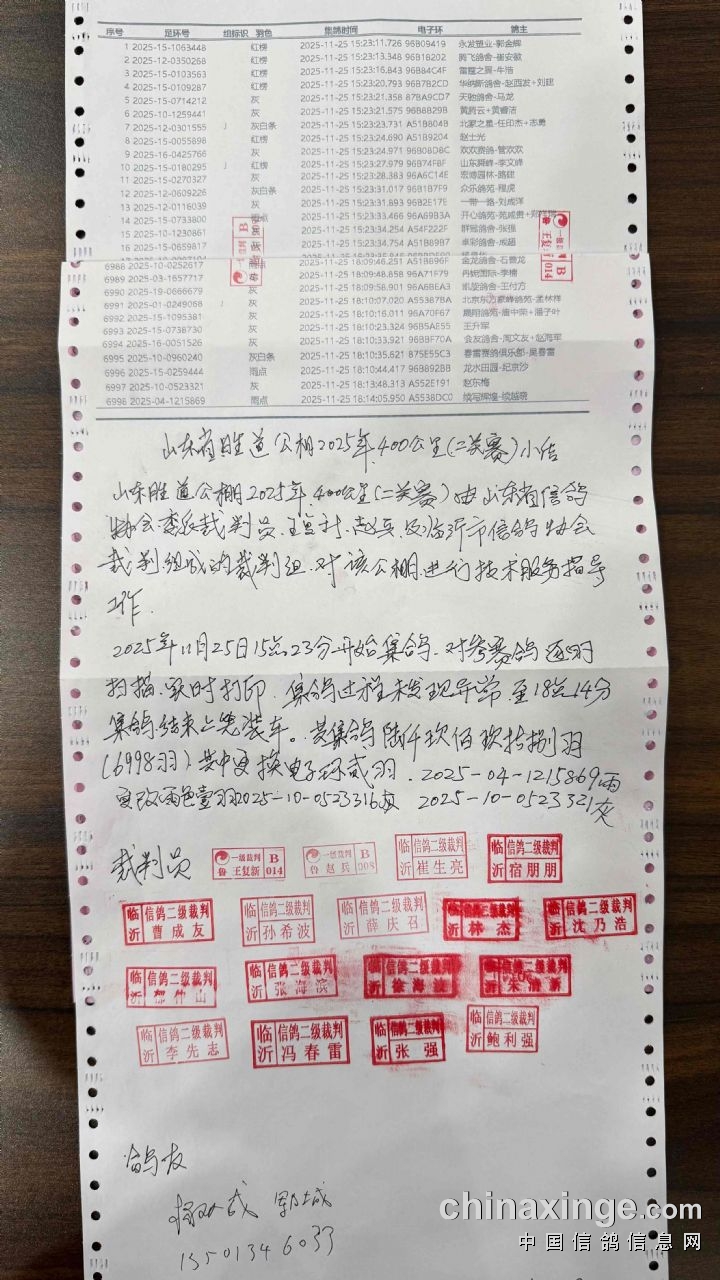 序号 足环号 组标识 羽色 集鸽时间 电子环 鸽主
1 2025-15-1063448 红楞 2025-11-25 15:23:11.726 96B09419 永发塑业-郭金辉
2 2025-12-0350268 红楞 2025-11-25 15:23:13.348 96B18202 腾飞鸽舍-崔安敏
3 2025-15-0103563 红楞 2025-11-25 15:23:16.843 96B84C4F 雷霆之翼-牛浩
4 2025-15-0109287 红楞 2025-11-25 15:23:20.793 96B7B2CD 华纳斯鸽舍-赵西发+刘建
5 2025-15-0714212 灰 2025-11-25 15:23:21.358 87BA9CD7 天驰鸽舍-马龙
6 2025-10-1259441 灰 2025-11-25 15:23:21.575 96B8B29B 黄腾云+黄睿洁
7 2025-12-0301555 灰白条 2025-11-25 15:23:23.731 A51B804B 北蒙之星-任印杰+志勇
8 2025-15-0055898 红楞 2025-11-25 15:23:24.690 A51B9204 赵士光
9 2025-16-0425766 灰 2025-11-25 15:23:24.971 96B08D8C 欢欢赛鸽-管欢欢
10 2025-15-0180295 红楞 2025-11-25 15:23:27.979 96B74FBF 山东舜峰-李文峰
11 2025-15-0270327 灰 2025-11-25 15:23:28.383 96A6C14E 宏博园林-路建
12 2025-12-0609226 灰白条 2025-11-25 15:23:31.017 96B1B7F9 众乐鸽苑-程虎
13 2025-12-0116039 灰 2025-11-25 15:23:31.893 96B2E17E 一带一路-刘成洋
14 2025-15-0733800 雨点 2025-11-25 15:23:33.466 96A69B3A 开心鸽苑-苑咸贵+
15 2025-10-1230861 2025-11-25 15:23:34.254 A54F222F 群冠鸽舍-张强
16 2025-15-0659817 灰 2025-11-25 15:23:34.754 A51B89B7 卓彩鸽舍-成超
6988 2025-10-0252617 雨点 2025-11-25 18:09:46.251 A51B896F 金龙鸽舍-石善龙
6989 2025-03-1657717 灰 2025-11-25 18:09:48.858 96A71F79 丹妮国际-李楠
6990 2025-19-0666679 灰 2025-11-25 18:09:58.901 96A6BEA3 凯旋鸽舍-王付方
6991 2025-01-0249068 灰 2025-11-25 18:10:07.020 A55387BA 北京东方豪峰鸽苑-孟林祥
6992 2025-15-1095381 灰 2025-11-25 18:10:16.011 96A70F67 翱翔鸽苑-唐中荣+潘子叶
6993 2025-15-0738730 灰 2025-11-25 18:10:23.324 96B5AE55 王升军
6994 2025-16-0051526 灰 2025-11-25 18:10:33.921 96BBF70A 会友鸽舍-周文友+赵海军
6995 2025-10-0960240 灰白条 2025-11-25 18:10:35.621 875E55C3 春雷赛鸽俱乐部-吴春雷
6996 2025-15-0259444 雨点 2025-11-25 18:10:44.417 96B892BB 龙水田园-纪京沙
6997 2025-10-0523321 灰 2025-11-25 18:13:48.313 A552E191 赵东梅
6998 2025-04-1215869 雨点 2025-11-25 18:14:05.950 A5538DC0 续写辉煌-续越晓
山东省胜道公棚2025年400公里(二关赛)小结
山东胜道公棚2025年400公里(二关赛)由山东省信鸽
协会委派裁判员.王复新.赵兵及临沂市信鸽协会
裁判组成的裁判组.对该公棚进行技术服务指导
工作.
2025年11月25日15点23分开始集鸽.对参赛鸽逐羽
扫描.实时打印.集鸽过程未发现异常.至18点14分
集鸽结束上笼装车。共集鸽陆仟玖佰玖拾捌羽
(6998羽)其中更换电子环贰羽.2025-04-1215869雨
更改雨色壹羽2025-10-0523316灰 2025-10-0523321灰
裁判员
一级裁判 B 鲁 王复新 014
一级裁判 B 鲁 赵兵 008
临沂 信鸽二级裁判 崔生亮
临沂 信鸽二级裁判 宿朋朋
临沂 信鸽二级裁判 曹成友
临沂 信鸽二级裁判 孙希波
临沂 信鸽二级裁判 薛庆召
临沂 信鸽二级裁判 林杰
临沂 信鸽二级裁判 沈乃浩
临沂 信鸽二级裁判
临沂 信鸽二级裁判 张海滨
临沂 信鸽二级裁判 徐海波
临沂 信鸽二级裁判 朱清新
临沂 信鸽二级裁判 李先志
临沂 信鸽二级裁判 冯春雷
临沂 信鸽二级裁判 张强
临沂 信鸽二级裁判 鲍利强
鸽友
郓城
1501346033
chinaxinge.com
中国信鸽信息网